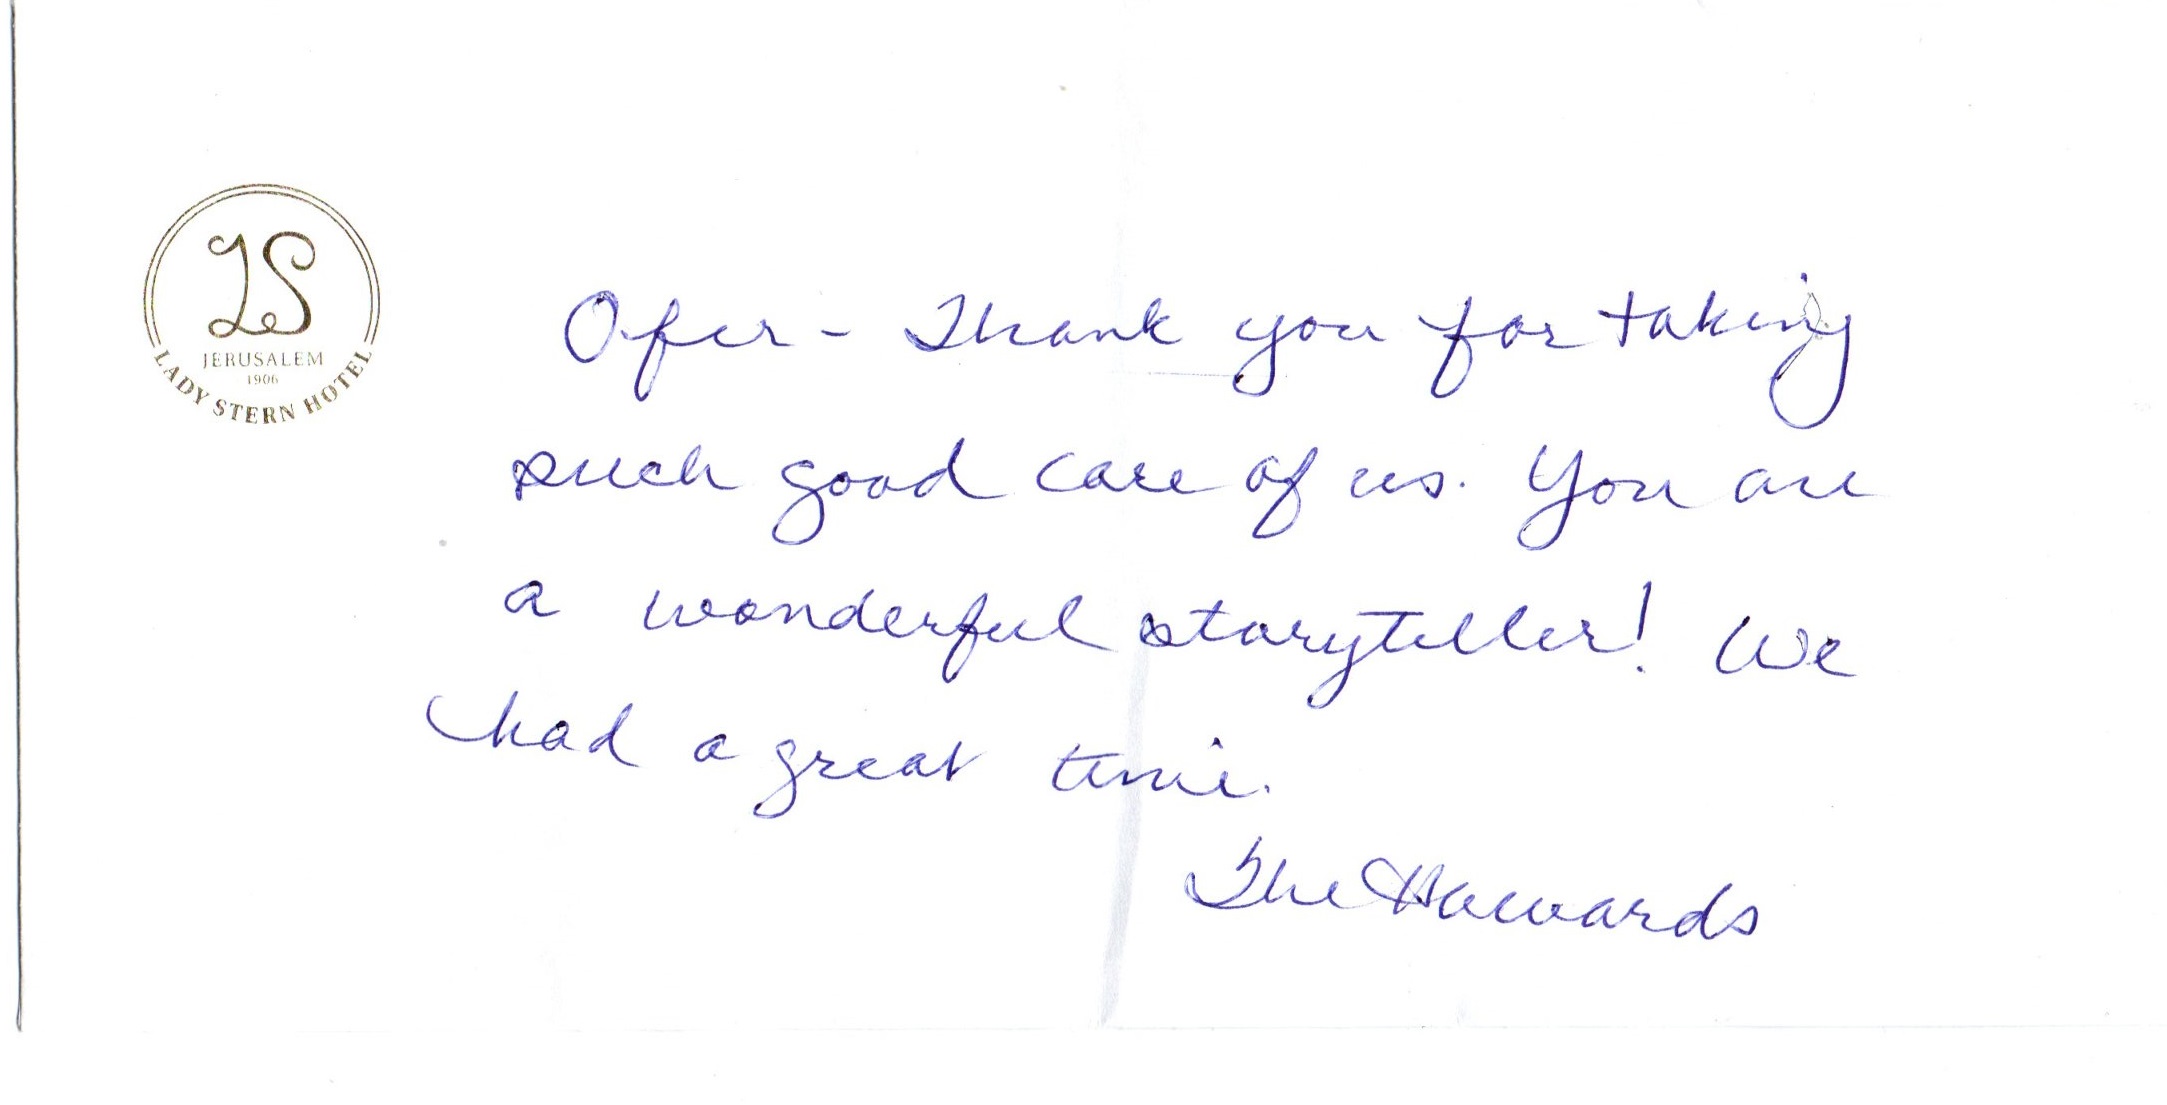 LS
JERUSALEM
1906
LADY STERN HOTEL
Ofer - Thank you for taking
such good care of us. You are
a wonderful storyteller! We
had a great time.
The Howards